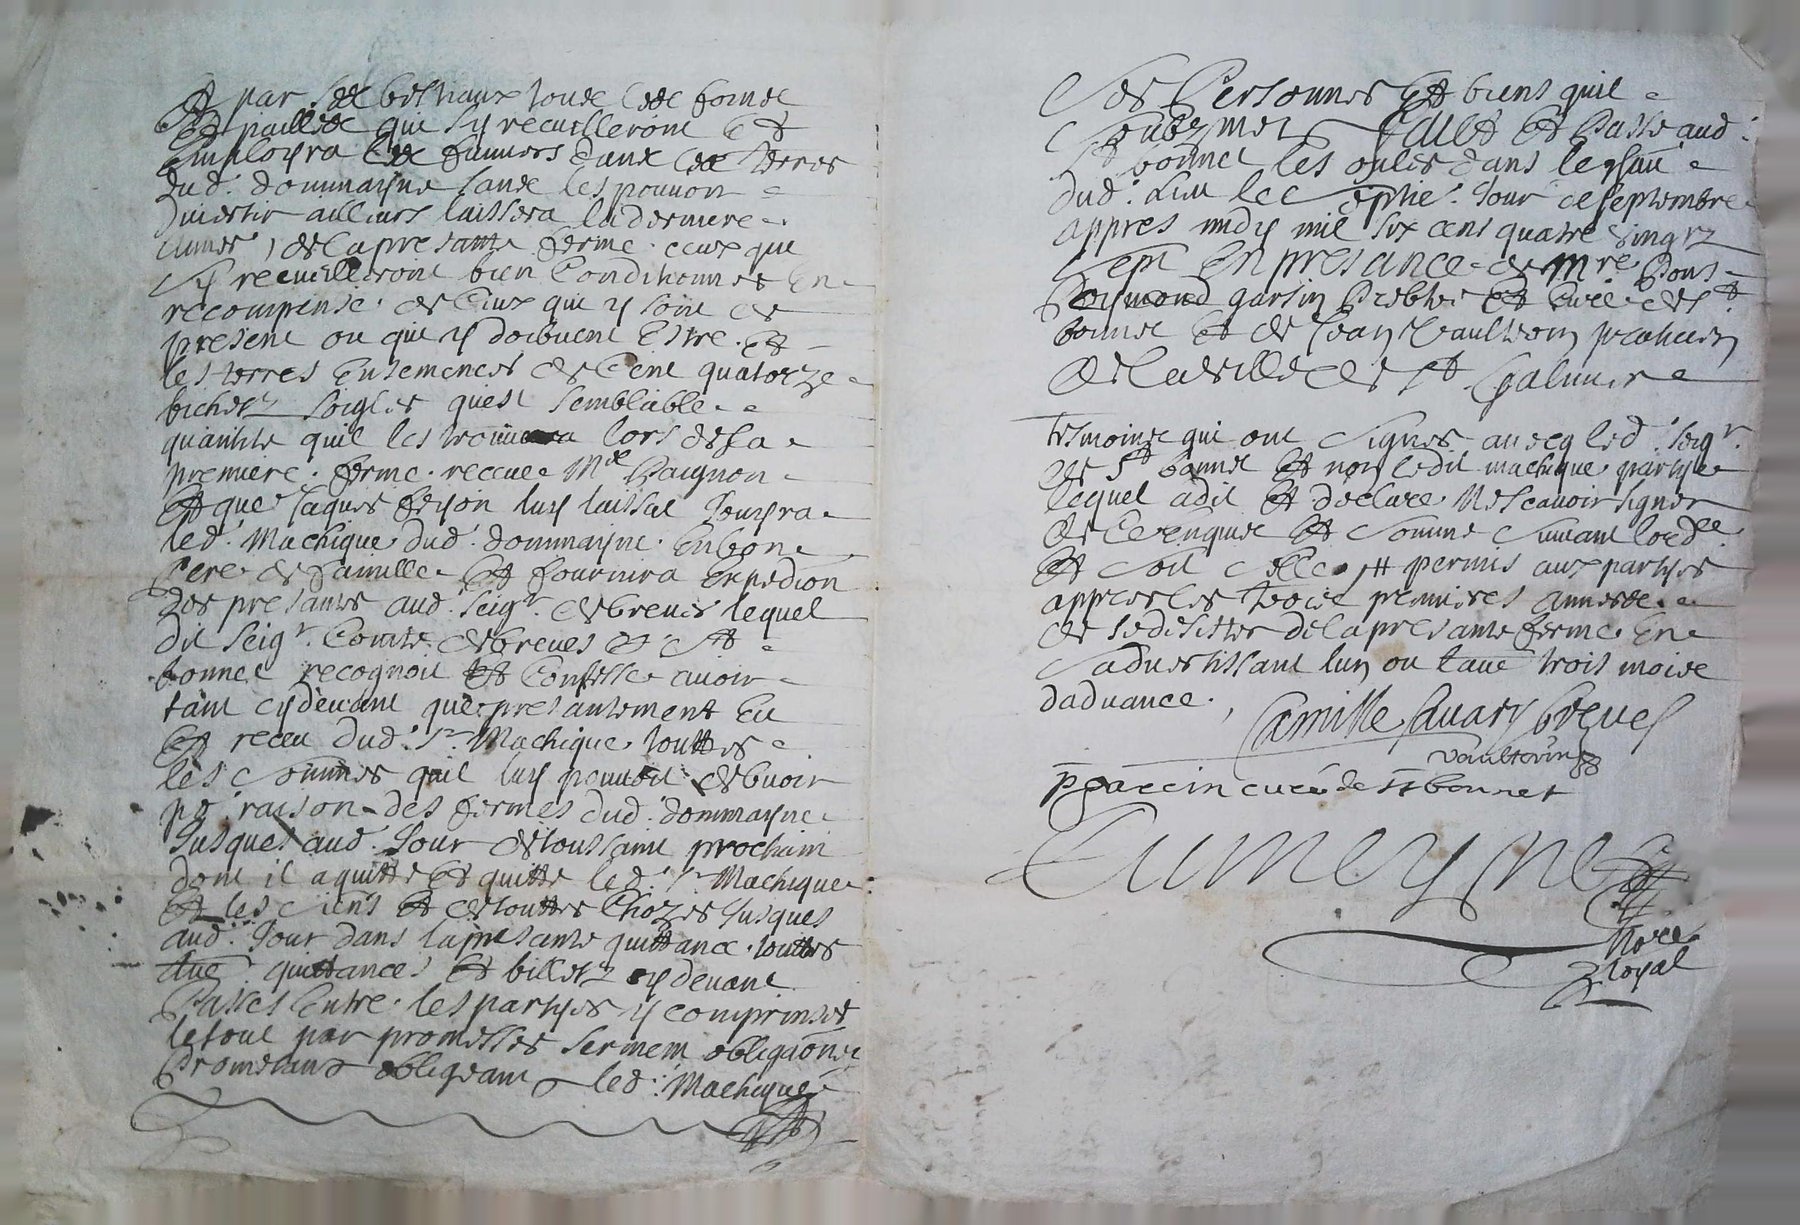 Et par ses bestiaux tous les foins
Et pailles qui sy recueilleront Et
Employra les fumiers dans les terres
dud. dommayne sans les pouvoir
divertir ailleurs laissera la derniere
année de la presante ferme ceux qui
sy recueilleront bien Conditionnes En
recompense de Ceux qui y sont de
present ou qui y doibvent Estre Et
les terres Ensemences de Cent quatorze
bichetz soigles quest semblable
quantite quil les trouvera lors de sa
premiere ferme receue Mre Paignon
Et que Jaques feyon luy laissat Jouyra
led. Machique dud. dommayne En bon
Pere de famille Et fournira Expedion
des presantes aud. seigr. de breves lequel
dit seigr. Comte de breves Et St
bonnet recognoit Et Confesse avoir
tant cy devant que presantement Eu
Et receu dud. Sr. Machique touttes
les sommes quil luy pouvoit debvoir
po. raison des fermes dud. dommayne
Jusques aud. Jour de toussaint prochain
dont il a quitte Et quitte led. Sr. Machique
Et les siens Et de touttes Chozes Jusques
aud. Jour dans la presante quittance touttes
quittances Et billetz cy devant
Passes Entre les partyes y comprinses
le tout par promesses serment obligaones
Prometant obligeant led. Machique
Ses Personnes Et biens quil
Soubzmet faict Et Passe aud.
St bonnet les oules dans le chau
dud. Lieu le septie. Jour de septembre
appres midy mil six cens quatre vingtz
sept En presance de Mre Pons
Raymond garsin Prebtre Et Cure de St
bonnet Et de Jean Vaultorin praticien
De la ville de St Galmier
tesmoins qui ont signes avecq led. seigr.
de St bonnet Et non ledit machique partye
lequel a dit Et declare Ne scavoir signer
De Ce Enquis Et somme suivant lordce
Et soit Celle permis aux partyes
appres les trois premieres annees
de se desister de la presante ferme En
sadvertissant lun ou lautre trois mois
dadvance.
Camille Savary Breves
Vaultorin
P garcin curé de St bonnet
Cumeyne
Nore
Royal